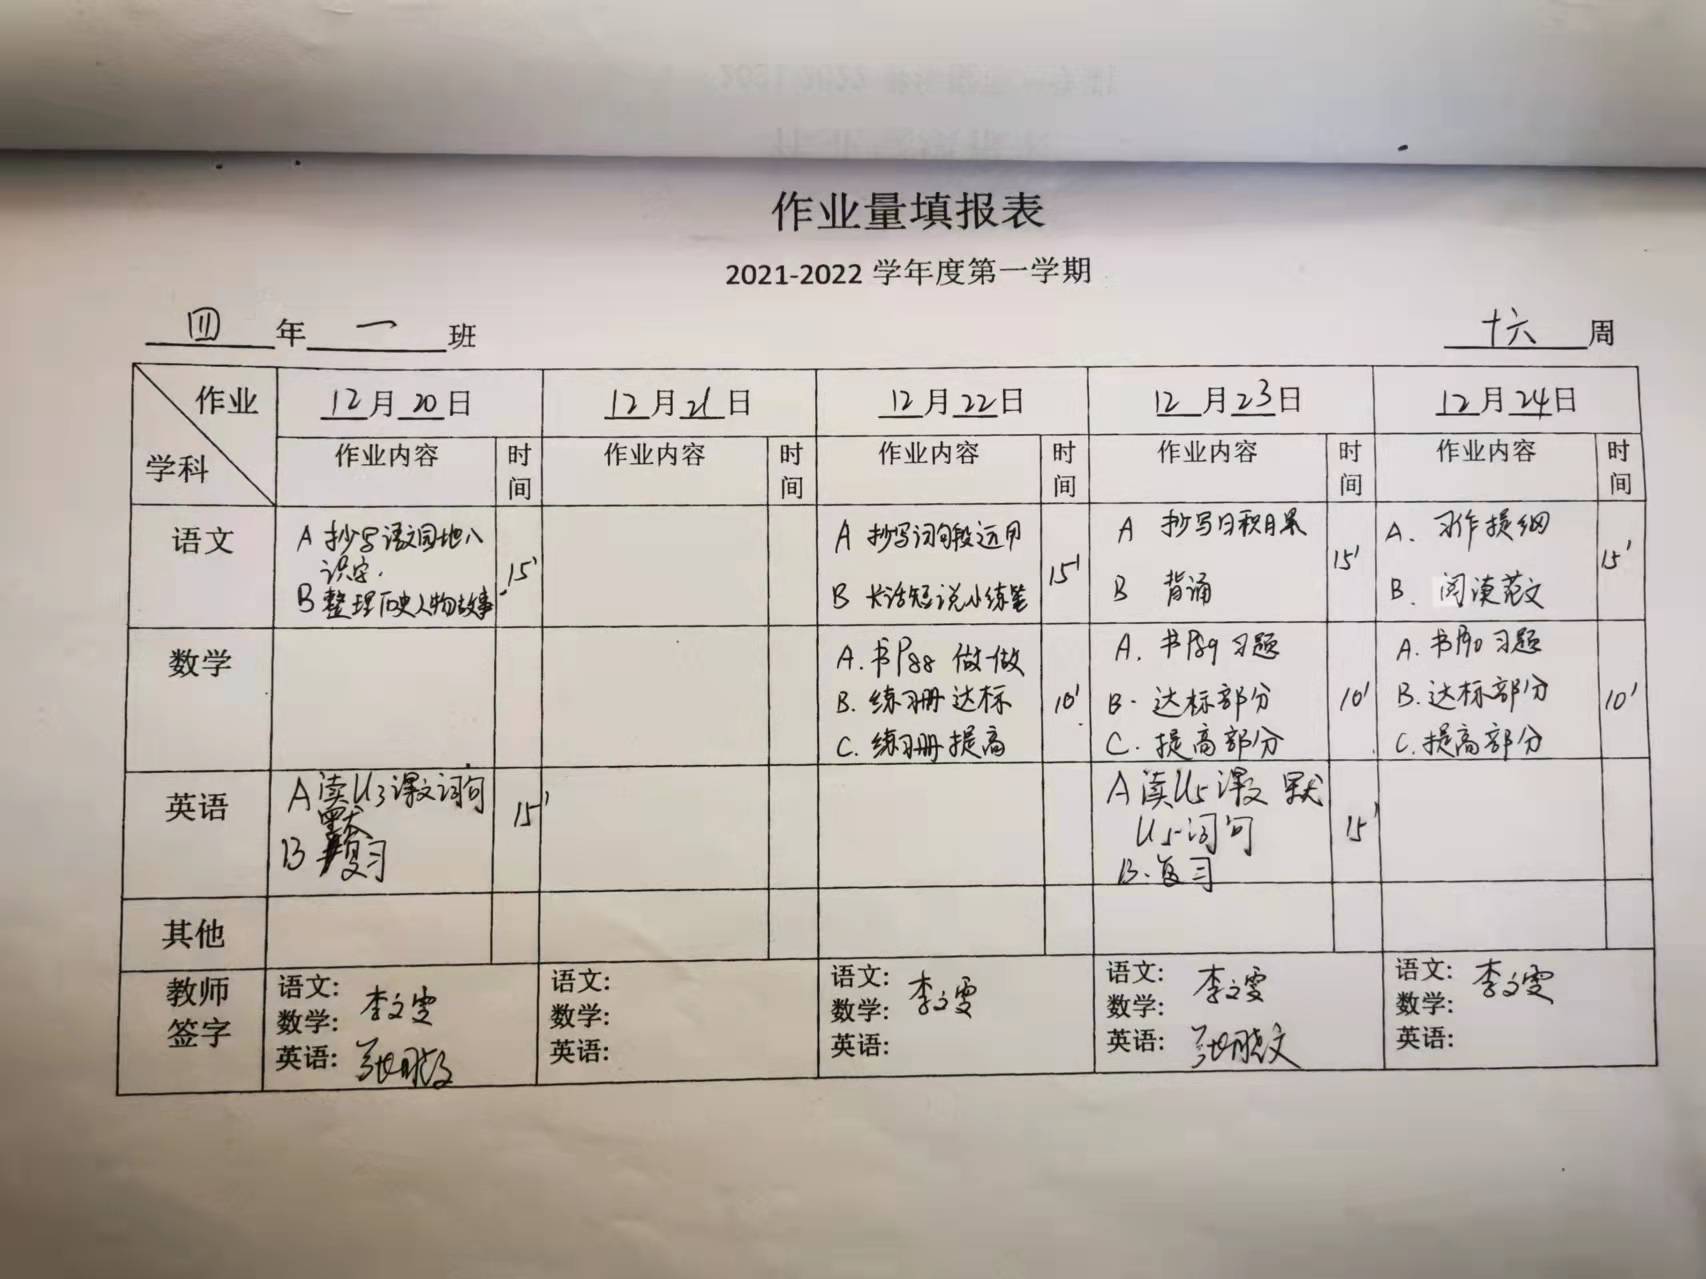 作业量填报表
2021-2022 学年度第一学期
四 年 一 班 十六 周
作业 12月20日 12月21日 12月22日 12月23日 12月24日
学科 作业内容 时间 作业内容 时间 作业内容 时间 作业内容 时间 作业内容 时间
语文
A 抄写语文园地八
识字.
B 整理历史人物故事
15'
A 抄写词句段运用
B 长话短说小练笔
15'
A 抄写日积月累
B 背诵
15'
A. 习作提纲
B. 阅读范文
15'
数学
A. 书P88 做一做
B. 练习册达标
C. 练习册提高
10'
A. 书P89 习题
B. 达标部分
C. 提高部分
10'
A. 书P90 习题
B. 达标部分
C. 提高部分
10'
英语
A 读U3课文词句
默
B 复习
15'
A 读U5课文 默
U5词句
B. 复习
15'
其他
教师
签字
语文:
数学: 李文雯
英语:
语文:
数学:
英语:
语文:
数学: 李文雯
英语:
语文: 李文雯
数学:
英语:
语文: 李文雯
数学:
英语: